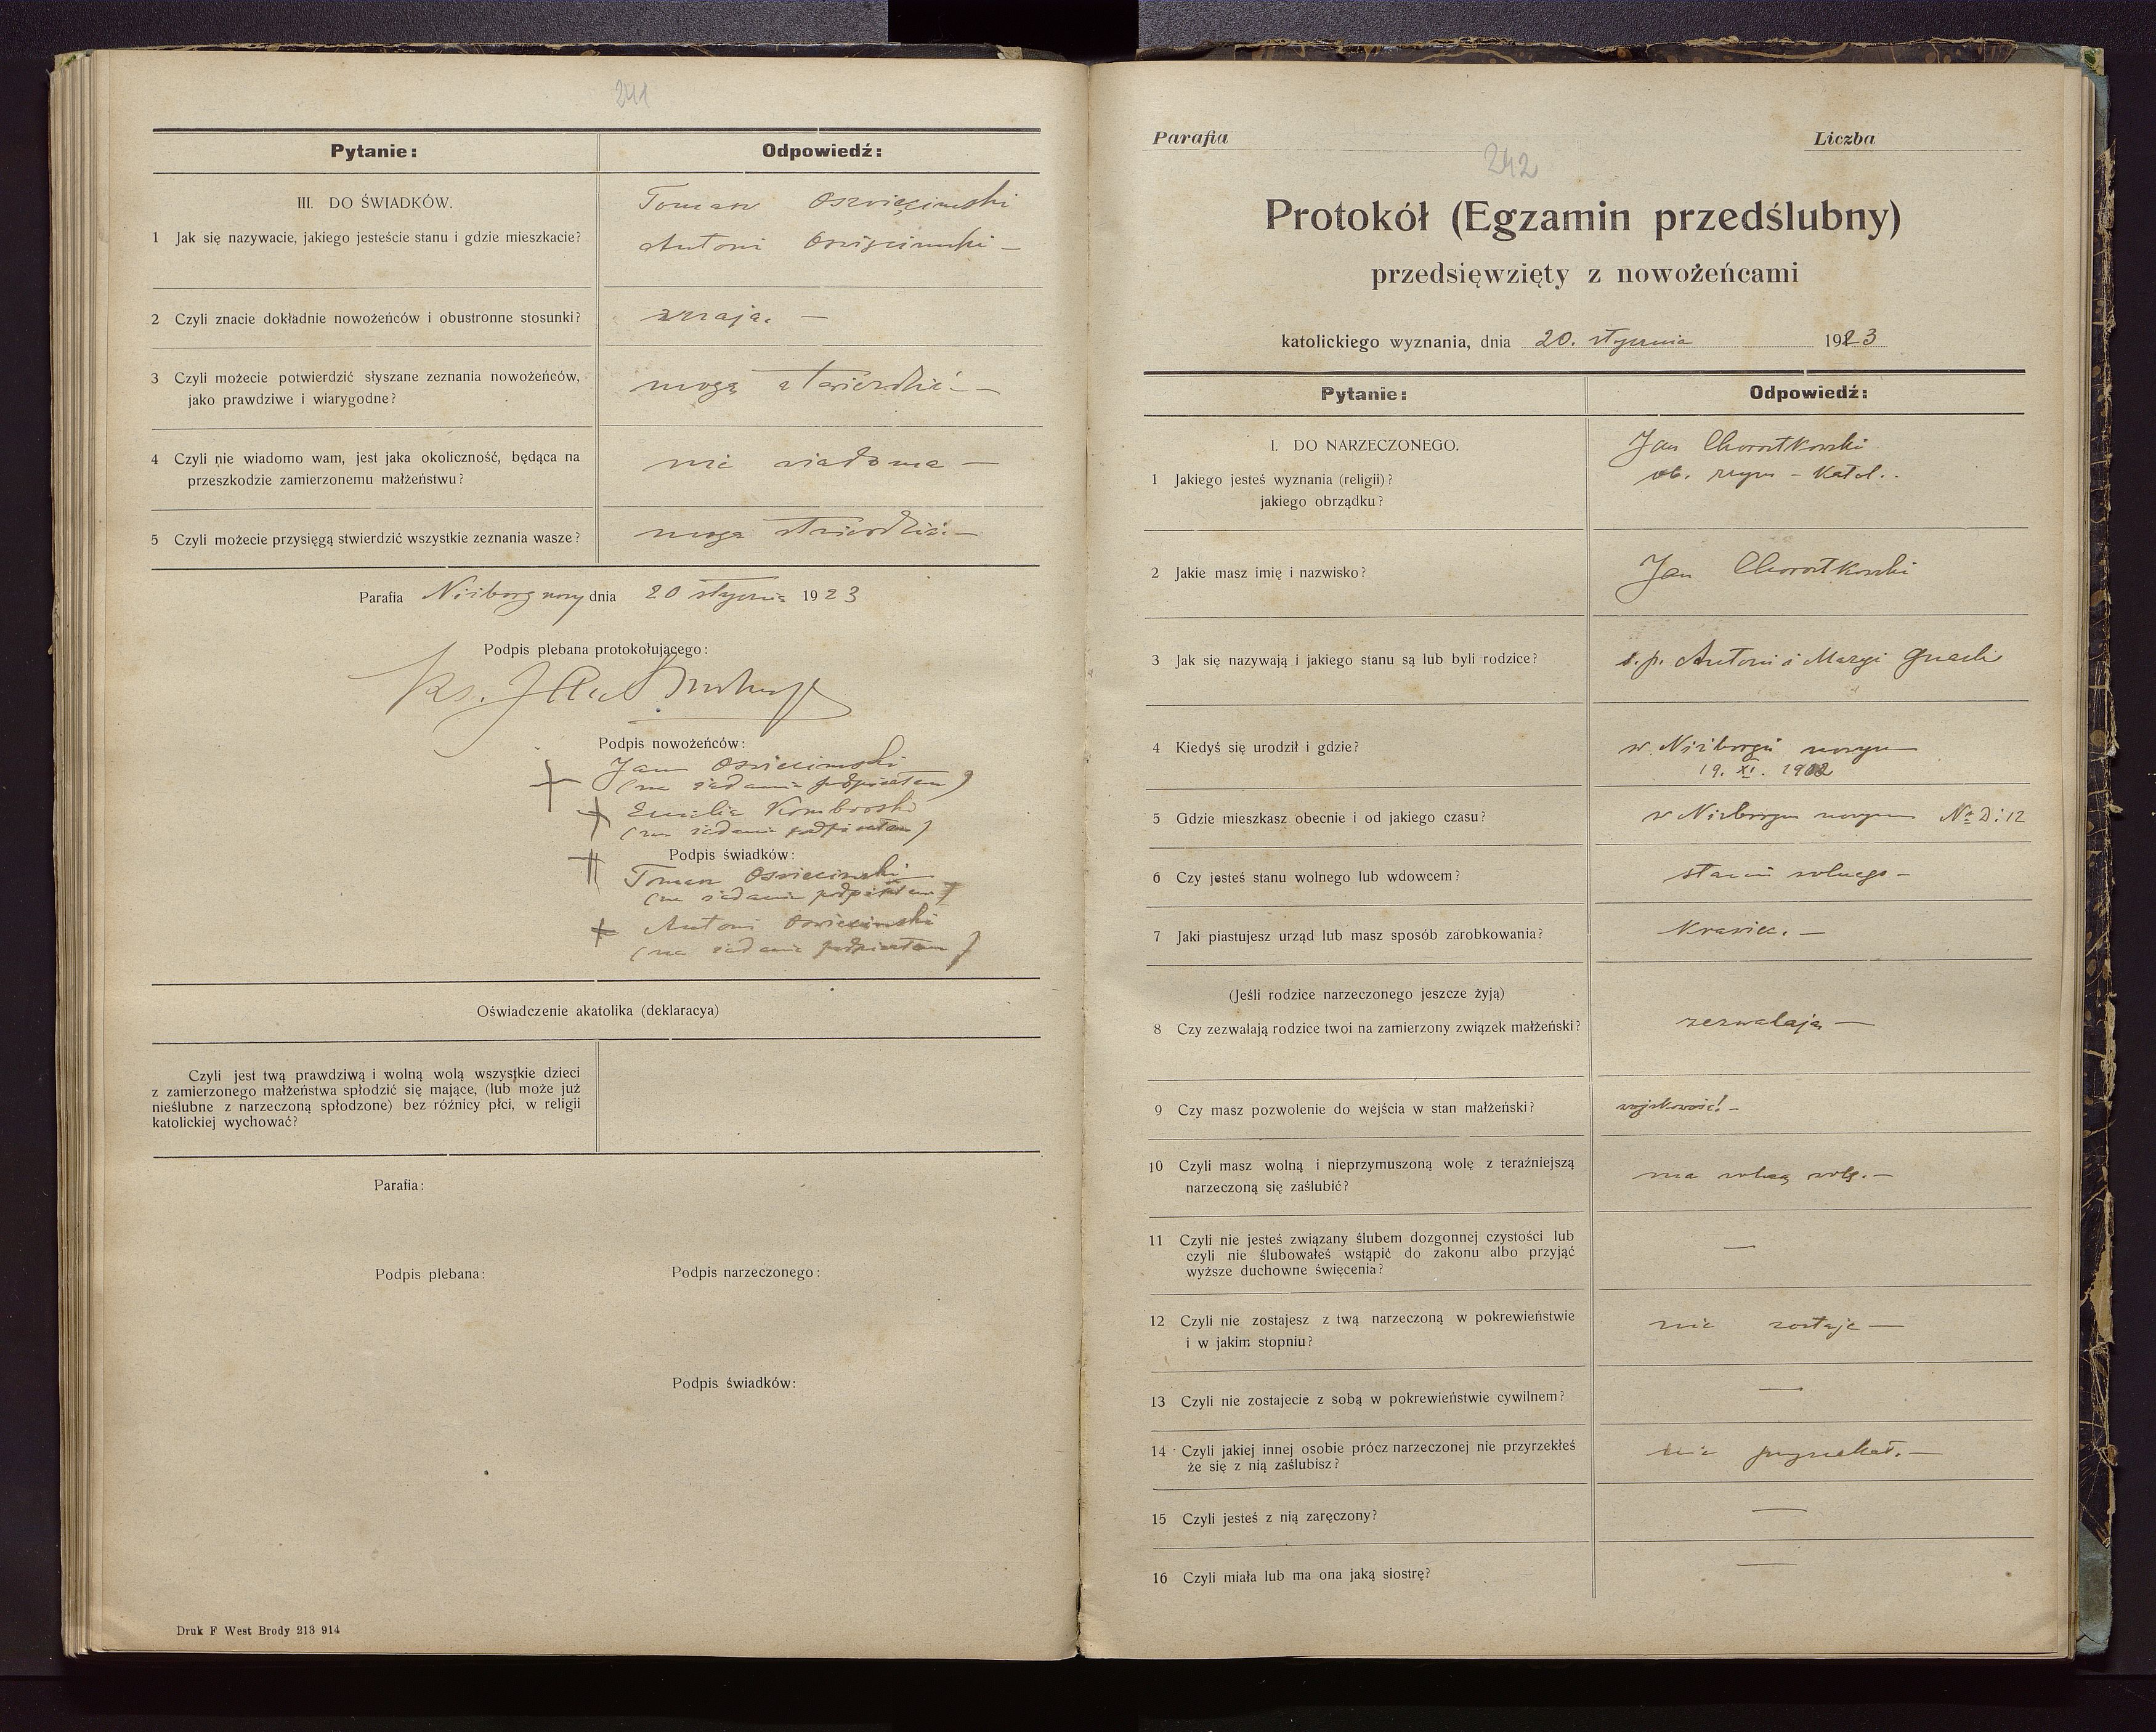 241
Pytanie:
Odpowiedź:
III. DO ŚWIADKÓW.
1 Jak się nazywacie, jakiego jesteście stanu i gdzie mieszkacie?
Tomasz Oświęcimski
Antoni Oświęcimski —
2 Czyli znacie dokładnie nowożeńców i obustronne stosunki?
znają. —
3 Czyli możecie potwierdzić słyszane zeznania nowożeńców,
jako prawdziwe i wiarygodne?
mogą stwierdzić. —
4 Czyli nie wiadomo wam, jest jaka okoliczność, będąca na
przeszkodzie zamierzonemu małżeństwu?
nie wiadoma —
5 Czyli możecie przysięgą stwierdzić wszystkie zeznania wasze?
mogą stwierdzić. —
Parafia Niżborg nowy dnia 20 stycznia 1923
Podpis plebana protokołującego:
Ks.
Podpis nowożeńców:
Jan Oświecimski
(na żądanie podpisałem)
Emilia
(na żądanie podpisałem)
Podpis świadków:
Tomasz Oświecimski
(na żądanie podpisałem)
Antoni Oświecimski
(na żądanie podpisałem)
Oświadczenie akatolika (deklaracya)
Czyli jest twą prawdziwą i wolną wolą wszystkie dzieci
z zamierzonego małżeństwa spłodzić się mające, (lub może już
nieślubne z narzeczoną spłodzone) bez różnicy płci, w religii
katolickiej wychować?
Parafia:
Podpis plebana:
Podpis narzeczonego:
Podpis świadków:
Druk F West Brody 213 914
Parafia
Liczba
242
Protokół (Egzamin przedślubny)
przedsięwzięty z nowożeńcami
katolickiego wyznania, dnia 20. stycznia 1923
Pytanie:
Odpowiedź:
I. DO NARZECZONEGO.
1 Jakiego jesteś wyznania (religii)?
jakiego obrządku?
Jan Chorostkowski
ob. rzym - Katol.
2 Jakie masz imię i nazwisko?
Jan Chorostkowski
3 Jak się nazywają i jakiego stanu są lub byli rodzice?
ś.p. Antoni i Maryi
4 Kiedyś się urodził i gdzie?
w Niżborgu nowym
19. XI. 1902
5 Gdzie mieszkasz obecnie i od jakiego czasu?
w Niżborgu nowym No D: 12
6 Czy jesteś stanu wolnego lub wdowcem?
stanu wolnego —
7 Jaki piastujesz urząd lub masz sposób zarobkowania?
Krawiec. —
(Jeśli rodzice narzeczonego jeszcze żyją)
8 Czy zezwalają rodzice twoi na zamierzony związek małżeński?
zezwalają —
9 Czy masz pozwolenie do wejścia w stan małżeński?
wojskowość! —
10 Czyli masz wolną i nieprzymuszoną wolę z teraźniejszą
narzeczoną się zaślubić?
ma wolną wolę. —
11 Czyli nie jesteś związany ślubem dozgonnej czystości lub
czyli nie ślubowałeś wstąpić do zakonu albo przyjąć
wyższe duchowne święcenia?
—
12 Czyli nie zostajesz z twą narzeczoną w pokrewieństwie
i w jakim stopniu?
nie zostaje —
13 Czyli nie zostajecie z sobą w pokrewieństwie cywilnem?
—
14 Czyli jakiej innej osobie prócz narzeczonej nie przyrzekłeś
że się z nią zaślubisz?
nie przyrzekał. —
15 Czyli jesteś z nią zaręczony?
—
16 Czyli miała lub ma ona jaką siostrę?
—